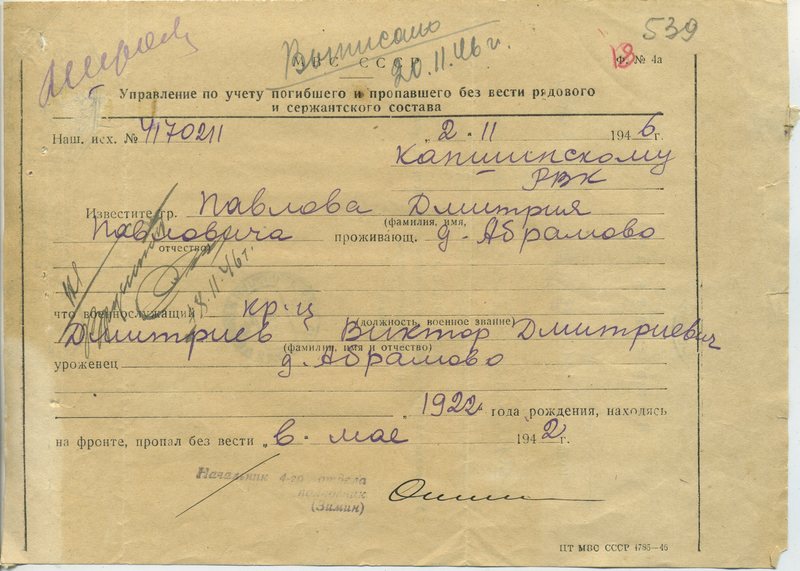 539
Выписано
20.11.46 г.
МВС СССР
18
Ф. № 4а
Управление по учету погибшего и пропавшего без вести рядового
и сержантского состава
Наш. исх. № 4170211
„ 2 · 11 1946 г.
Капшинскому
РВК
Известите гр. Павлова Дмитрия
(фамилия, имя,
Павловича проживающ. д. Абрамово
отчество)
28.11.46 г.
что военнослужащий кр-ц
(должность, военное звание)
Дмитриев Виктор Дмитриевич
(фамилия, имя и отчество)
уроженец д. Абрамово
1922 года рождения, находясь
на фронте, пропал без вести „ в мае 1942 г.
Начальник 4-го отдела
(Зимин)
ЦТ МВС СССР 4785—46